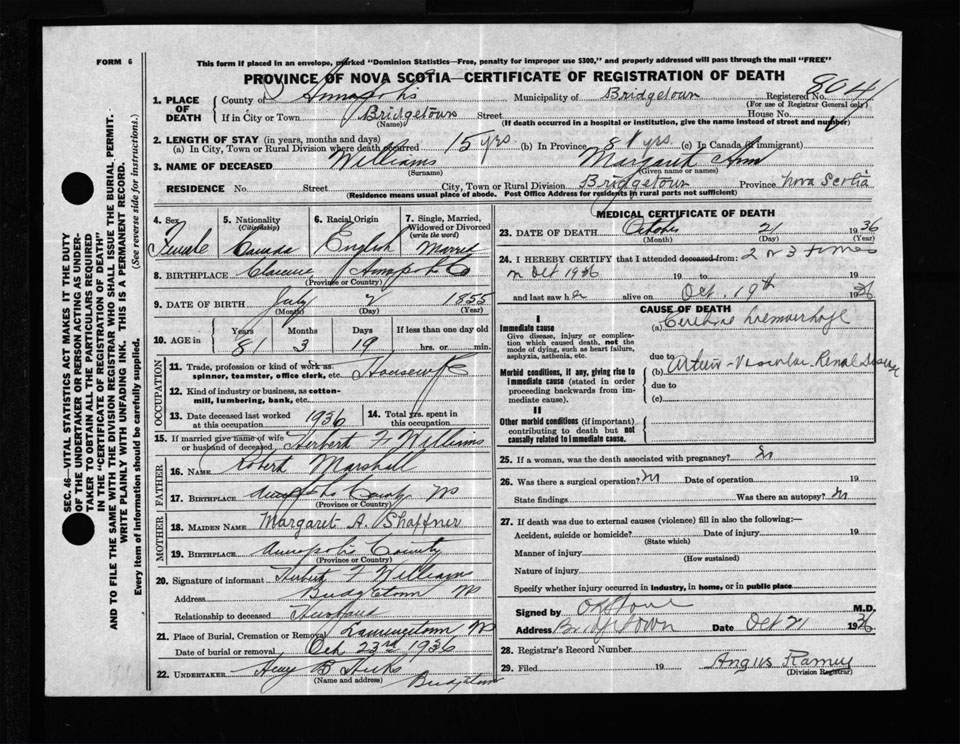 FORM 6
This form if placed in an envelope, marked "Dominion Statistics—Free, penalty for improper use $300," and properly addressed will pass through the mail "FREE"
PROVINCE OF NOVA SCOTIA—CERTIFICATE OF REGISTRATION OF DEATH
1. PLACE OF DEATH
County of Annapolis Municipality of Bridgetown Registered No. 8041
(For use of Registrar General only)
If in City or Town Bridgetown Street House No.
(Name) (If death occurred in a hospital or institution, give the name instead of street and number)
2. LENGTH OF STAY (in years, months and days)
(a) In City, Town or Rural Division where death occurred 15 yrs. (b) In Province 81 yrs. (c) In Canada (if immigrant)
3. NAME OF DECEASED Williams Margaret Ann
(Surname) (Given name or names)
RESIDENCE No. Street City, Town or Rural Division Bridgetown Province Nova Scotia
(Residence means usual place of abode. Post Office Address for residents in rural parts not sufficient)
4. Sex Female
5. Nationality (Citizenship) Canada
6. Racial Origin English
7. Single, Married, Widowed or Divorced (write the word) Married
8. BIRTHPLACE Clarence, Annapolis Co
(Province or Country)
9. DATE OF BIRTH July 2 1855
(Month) (Day) (Year)
10. AGE in Years 81 Months 3 Days 19 If less than one day old
hrs. or min.
OCCUPATION
11. Trade, profession or kind of work as spinner, teamster, office clerk, etc. Housewife
12. Kind of industry or business, as cotton-mill, lumbering, bank, etc.
13. Date deceased last worked at this occupation 1936
14. Total yrs. spent in this occupation
15. If married give name of wife or husband of deceased Herbert F Williams
FATHER
16. NAME Robert Marshall
17. BIRTHPLACE Annapolis County NS
(Province or Country)
MOTHER
18. MAIDEN NAME Margaret A. Shaffner
19. BIRTHPLACE Annapolis County
(Province or Country)
20. Signature of informant Herbert F Williams
Address Bridgetown NS
Relationship to deceased Husband
21. Place of Burial, Cremation or Removal Lawrencetown NS
Date of burial or removal Oct 23rd 1936
22. UNDERTAKER B Hicks
(Name and address) Bridgetown
MEDICAL CERTIFICATE OF DEATH
23. DATE OF DEATH October 21 1936
(Month) (Day) (Year)
24. I HEREBY CERTIFY that I attended deceased from: 2 or 3 times
in Oct 1936 19 to 19
and last saw her alive on Oct. 19th 1936
CAUSE OF DEATH
I
Immediate cause
Give disease, injury or complication which caused death, not the mode of dying, such as heart failure, asphyxia, asthenia, etc.
(a) Cerebral hemorrhage
due to
Morbid conditions, if any, giving rise to immediate cause (stated in order proceeding backwards from immediate cause).
(b) Arterio-Vascular Renal Disease
due to
(c)
II
Other morbid conditions (if important) contributing to death but not causally related to immediate cause.
25. If a woman, was the death associated with pregnancy? No
26. Was there a surgical operation? No Date of operation 19
State findings Was there an autopsy? No
27. If death was due to external causes (violence) fill in also the following:—
Accident, suicide or homicide? Date of injury 19
(State which)
Manner of injury
(How sustained)
Nature of injury
Specify whether injury occurred in industry, in home, or in public place
Signed by M.D.
Address Bridgetown Date Oct 21 1936
28. Registrar's Record Number
29. Filed 19 Angus Ramey
(Division Registrar)
SEC. 46—VITAL STATISTICS ACT MAKES IT THE DUTY
OF THE UNDERTAKER OR PERSON ACTING AS UNDERTAKER TO OBTAIN ALL THE PARTICULARS REQUIRED
IN THE "CERTIFICATE OF REGISTRATION OF DEATH"
AND TO FILE THE SAME WITH THE DIVISION REGISTRAR WHO SHALL ISSUE THE BURIAL PERMIT.
WRITE PLAINLY WITH UNFADING INK. THIS IS A PERMANENT RECORD.
Every item of information should be carefully supplied. (See reverse side for instructions.)